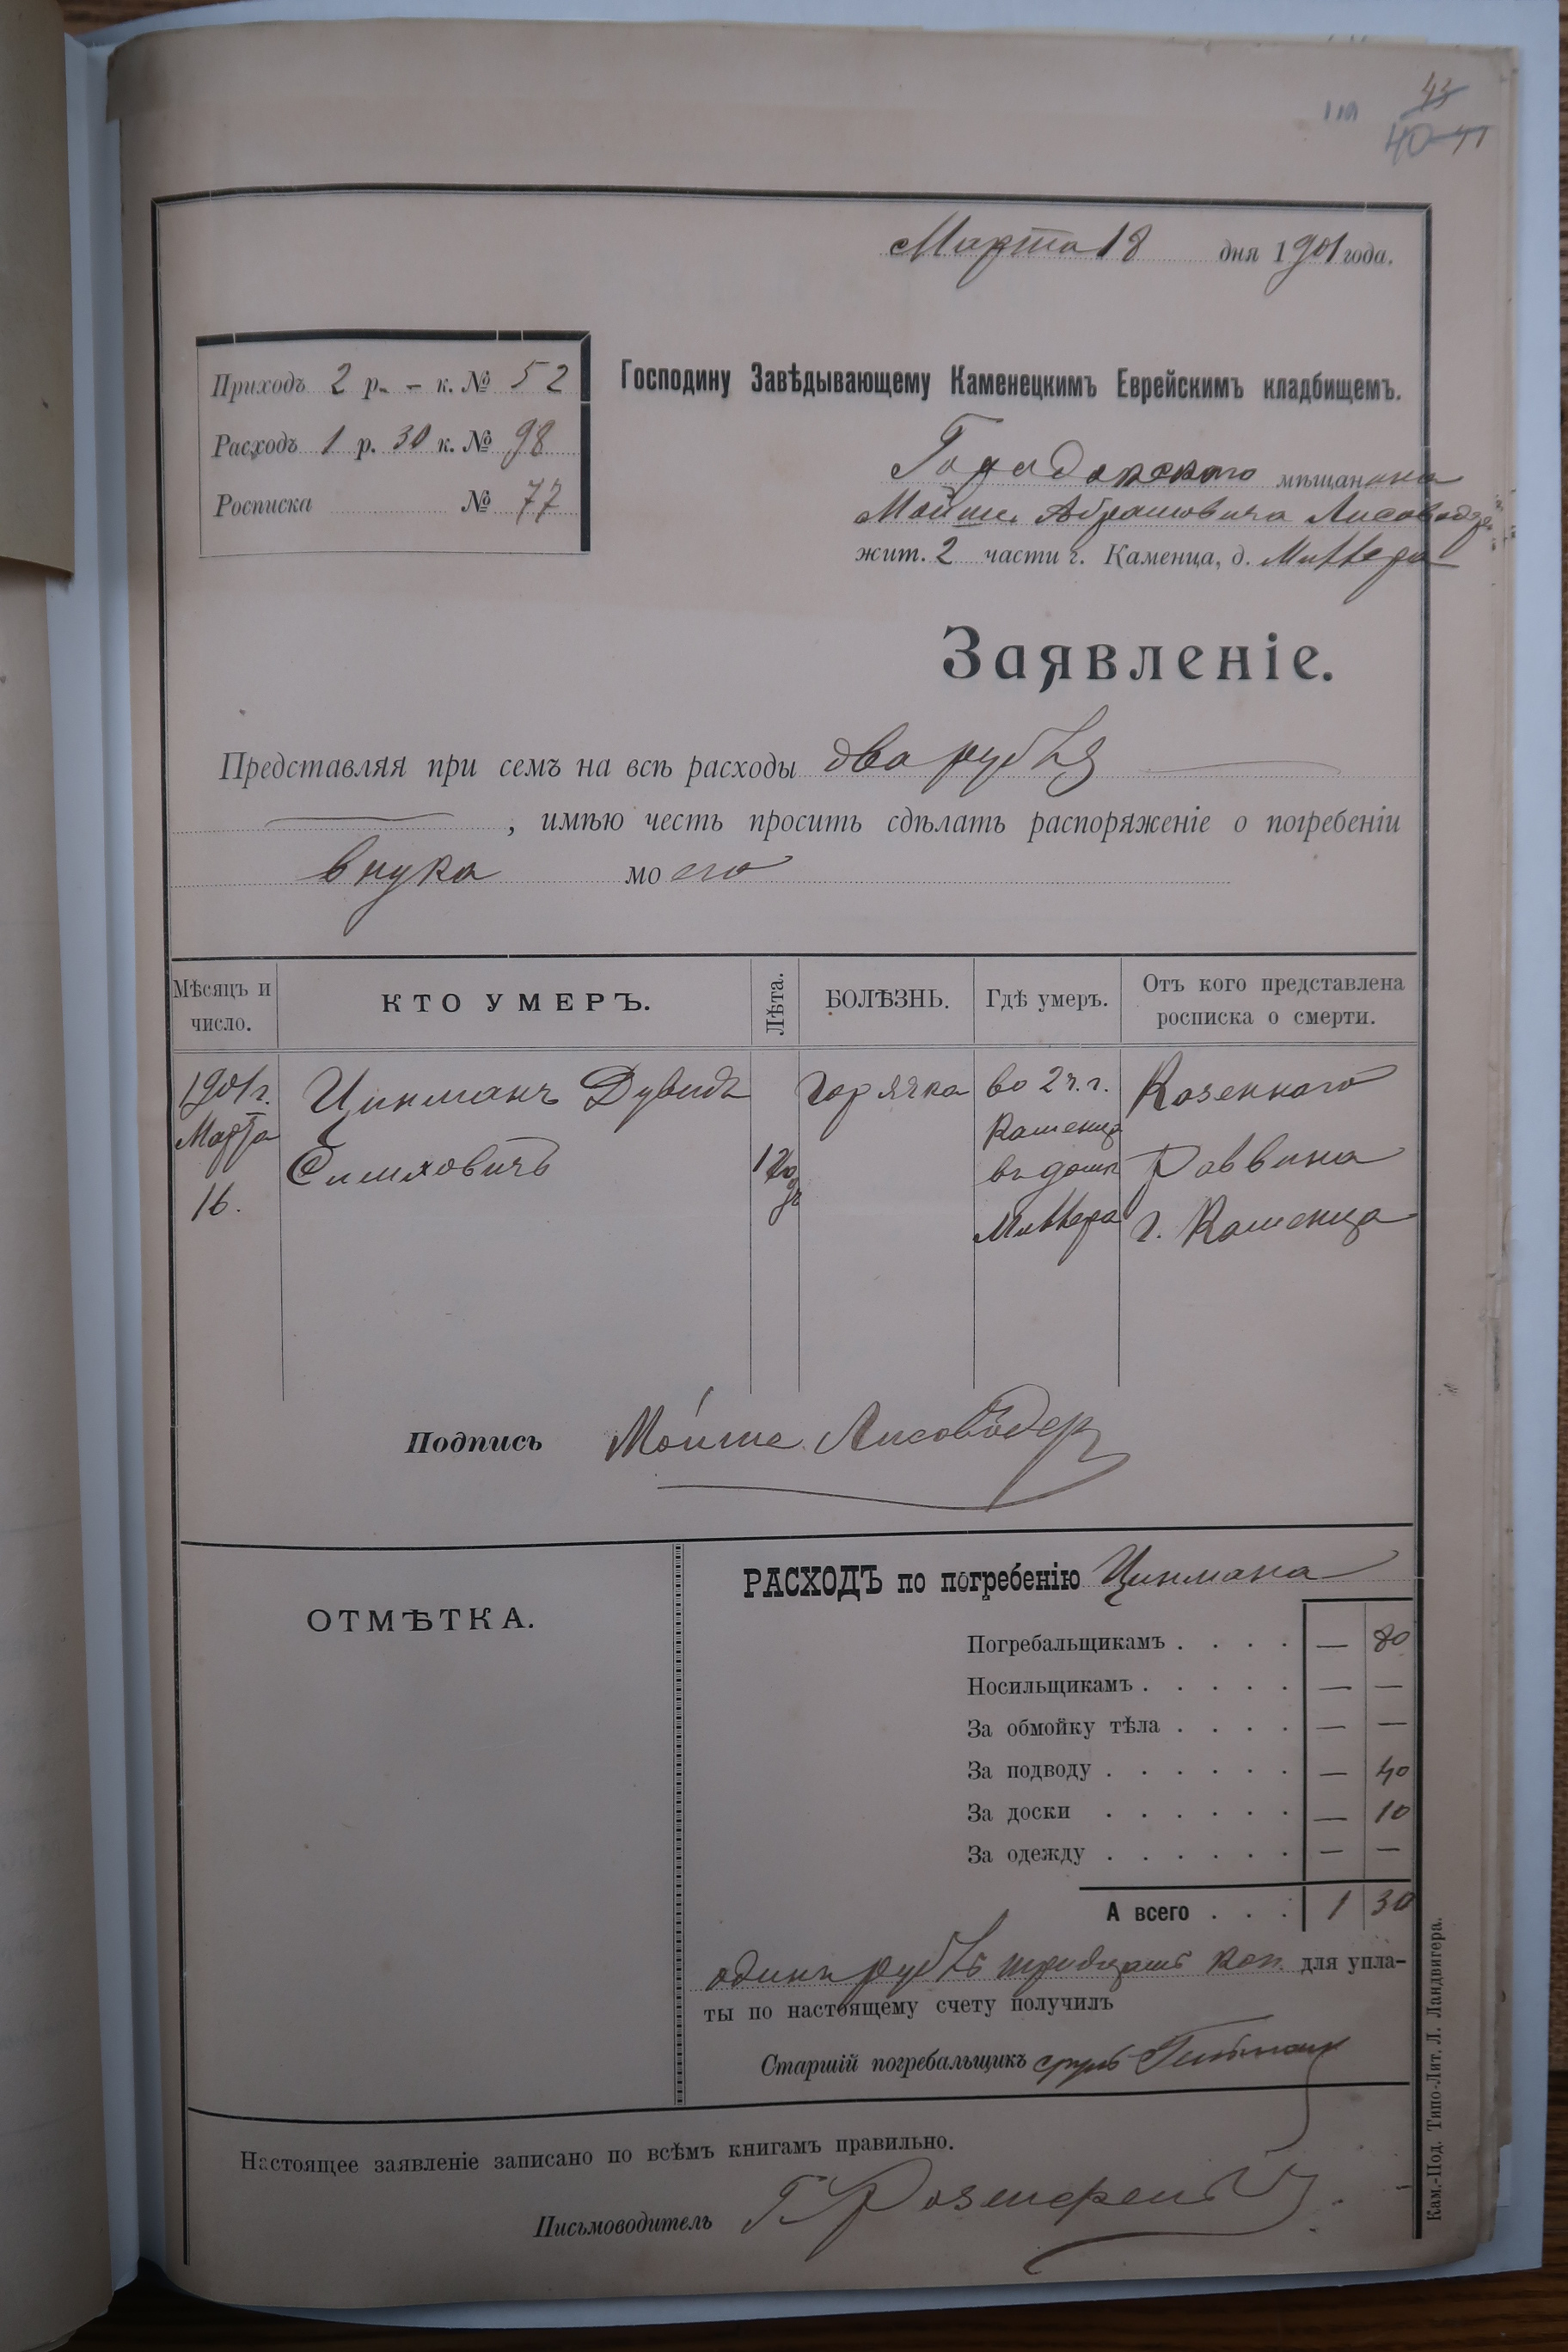 43
40 41
Марта 18 дня 1901 года.
Приходъ 2 р. - к. № 52
Расходъ 1 р. 30 к. № 98
Росписка № 77
Господину Завѣдывающему Каменецкимъ Еврейскимъ кладбищемъ.
Городокского мѣщанина
Мойше Абрамовича Лисоводер
жит. 2 части г. Каменца, д. Миллера
Заявленіе.
Представляя при семъ на всѣ расходы два рубля
, имѣю честь просить сдѣлать распоряженіе о погребеніи
внука моего
Мѣсяцъ и число. КТО УМЕРЪ. Лѣта. БОЛѢЗНЬ. Гдѣ умеръ. Отъ кого представлена росписка о смерти.
1901 г. Цинманъ Дувидъ горячка во 2 ч. г. Казеннаго
Марта Каменца
Симховичъ 1 годъ въ домѣ Раввина
16. Миллера г. Каменца
Подпись Мойше Лисоводер
ОТМѢТКА.
РАСХОДЪ по погребенію Цинмана
Погребальщикамъ . . . . — 80
Носильщикамъ . . . . . — —
За обмойку тѣла . . . . — —
За подводу . . . . . . — 40
За доски . . . . . . — 10
За одежду . . . . . . — —
А всего . . . 1 30
одинъ рубль тридцать коп. для упла-
ты по настоящему счету получилъ
Старшій погребальщикъ
Настоящее заявленіе записано по всѣмъ книгамъ правильно.
Письмоводитель
Кам.-Под. Типо-Лит. Л. Ландвигера.